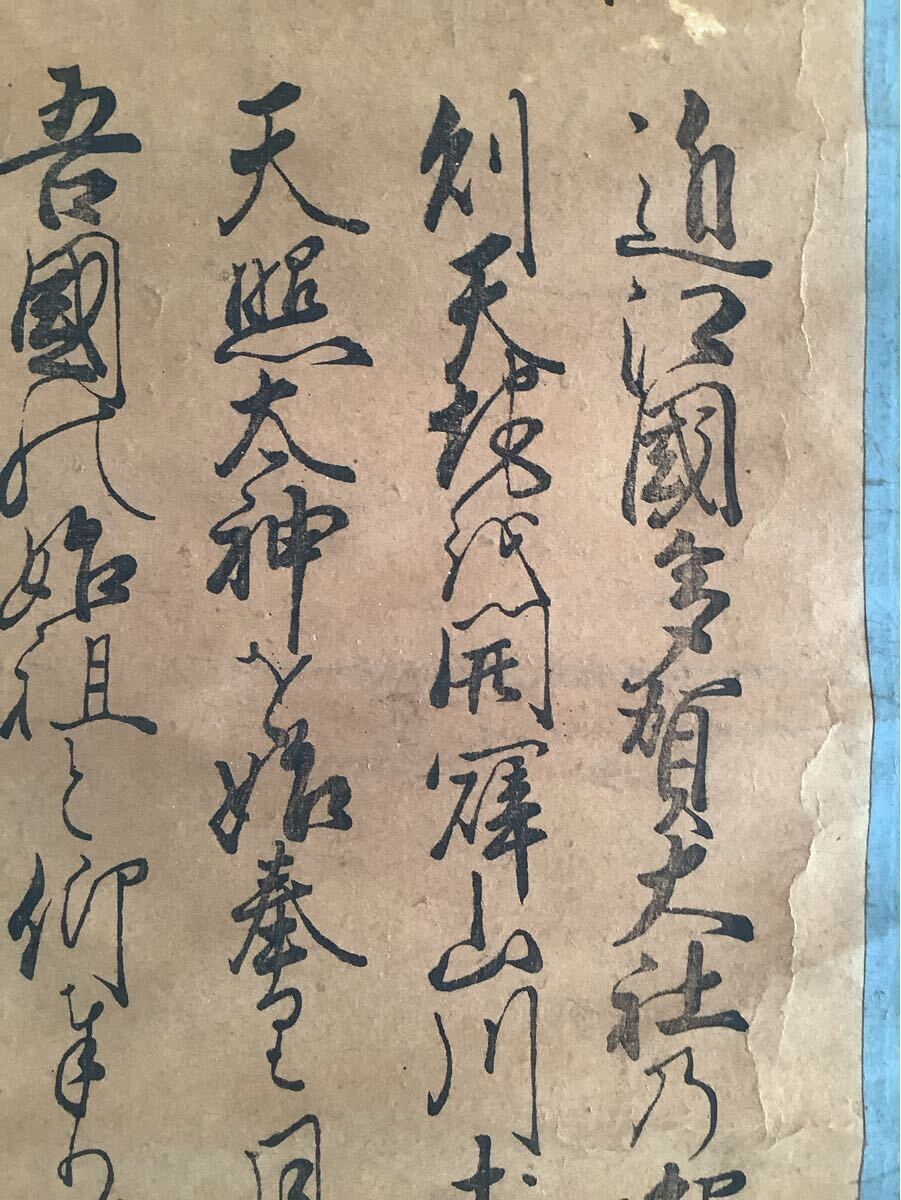 近江國多賀大社乃
創天地越開闢山川
天照太神を始奉里
吾國の始祖と仰奉り